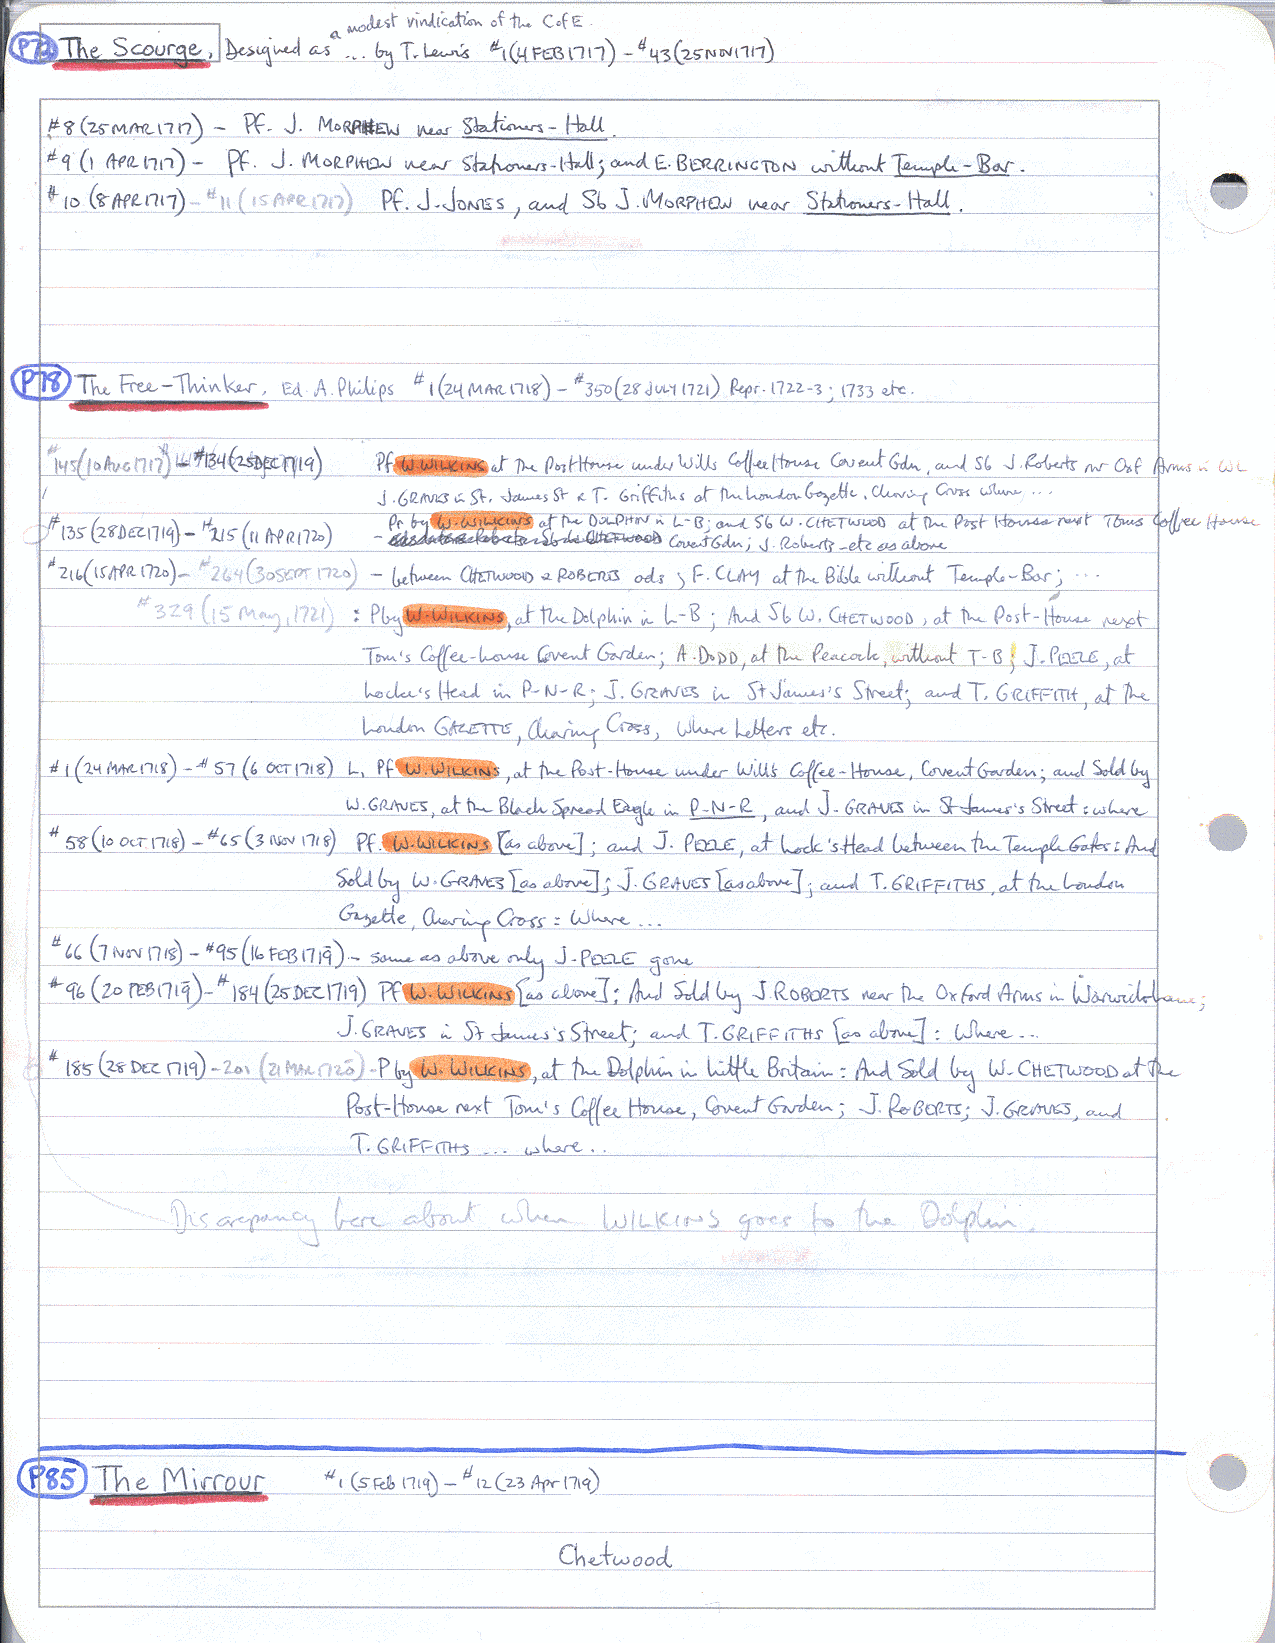 a modest vindication of the CofE.
P72 The Scourge, Designed as ... by T. Lewis #1(4 FEB 1717) – #43(25 NOV 1717)
#8 (25 MAR 1717) – Pf. J. MORPHEW near Stationers-Hall.
#9 (1 APR 1717) – Pf. J. MORPHEW near Stationers-Hall; and E. BERRINGTON without Temple-Bar.
#10 (8 APR 1717) – #11 (15 APR 1717) Pf. J. JONES, and Sb J. MORPHEW near Stationers-Hall.
P78 The Free-Thinker, Ed. A. Philips #1(24 MAR 1718) – #350(28 JULY 1721) Repr. 1722-3; 1733 etc.
#145(10 AUG 1717) – #134(25 DEC 1719) Pf W. WILKINS at the Post House under Wills Coffee House Covent Gdn, and Sb J. Roberts nr Oxf Arms in WL
J. GRAVES in St. James St & T. Griffiths at the London Gazette, Charing Cross where ...
#135 (28 DEC 1719) – #215 (11 APR 1720) – Pr by W. WILKINS at the DOLPHIN in L-B; and Sb W. CHETWOOD at the Post House next Toms Coffee House
Covent Gdn; J. Roberts – etc as above
#216 (15 APR 1720) – #264 (30 SEPT 1720) – between CHETWOOD & ROBERTS ads; F. CLAY at the Bible without Temple-Bar; ...
#329 (15 May, 1721) : P by W. WILKINS, at the Dolphin in L-B; And Sb W. CHETWOOD, at the Post-House next
Tom's Coffee-house Covent Garden; A. DODD, at the Peacock, without T-B; J. PEELE, at
Locke's Head in P-N-R; J. GRAVES in St James's Street; and T. GRIFFITH, at the
London GAZETTE, Charing Cross, Where Letters etc.
#1 (24 MAR 1718) – #57 (6 OCT 1718) L, Pf W. WILKINS, at the Post-House under Will's Coffee-House, Covent Garden; and Sold by
W. GRAVES, at the Black Spread Eagle in P-N-R, and J. GRAVES in St James's Street: where
#58 (10 OCT 1718) – #65 (3 NOV 1718) Pf. W. WILKINS [as above]; and J. PEELE, at Lock's Head between the Temple Gates: And
Sold by W. GRAVES [as above]; J. GRAVES [as above]; and T. GRIFFITHS, at the London
Gazette, Charing Cross: Where ...
#66 (7 NOV 1718) – #95 (16 FEB 1719) – same as above only J. PEELE gone
#96 (20 FEB 1719) – #184 (25 DEC 1719) Pf W. WILKINS [as above]; And Sold by J. ROBERTS near the Oxford Arms in Warwick Lane;
J. GRAVES in St James's Street; and T. GRIFFITHS [as above]: Where ...
#185 (28 DEC 1719) – 201 (21 MAR 1720) – P by W. WILKINS, at the Dolphin in Little Britain: And Sold by W. CHETWOOD at the
Post-House next Tom's Coffee House, Covent Garden; J. ROBERTS; J. GRAVES, and
T. GRIFFITHS ... where...
Discrepancy here about when WILKINS goes to the Dolphin.
P85 The Mirrour #1 (5 Feb 1719) – #12 (23 Apr 1719)
Chetwood